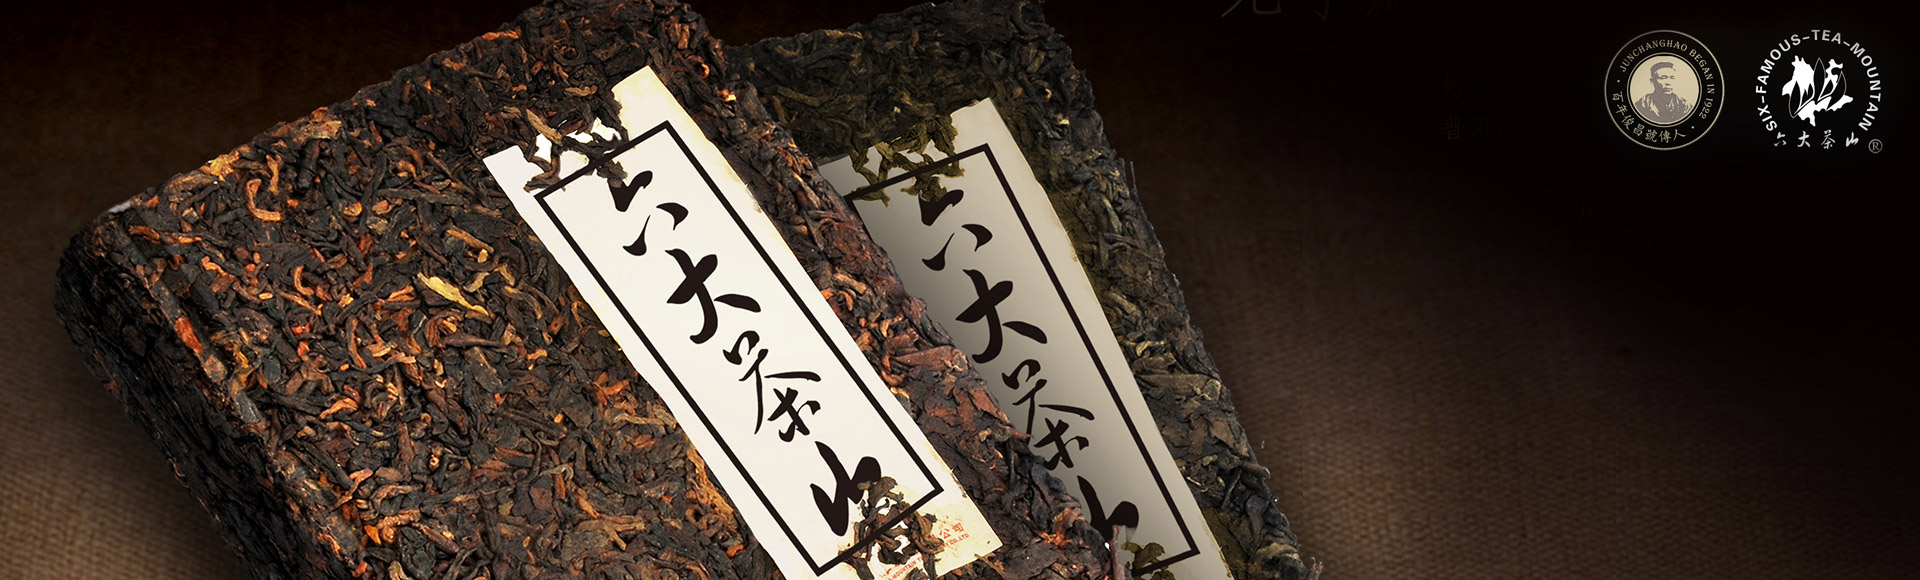 六大茶山
六大茶山
公司
MOUNTAIN
CO.,LTD
JUNCHANGHAO BEGAN IN 1922
百年俊昌號傳人
SIX-FAMOUS-TEA-MOUNTAIN
六大茶山®